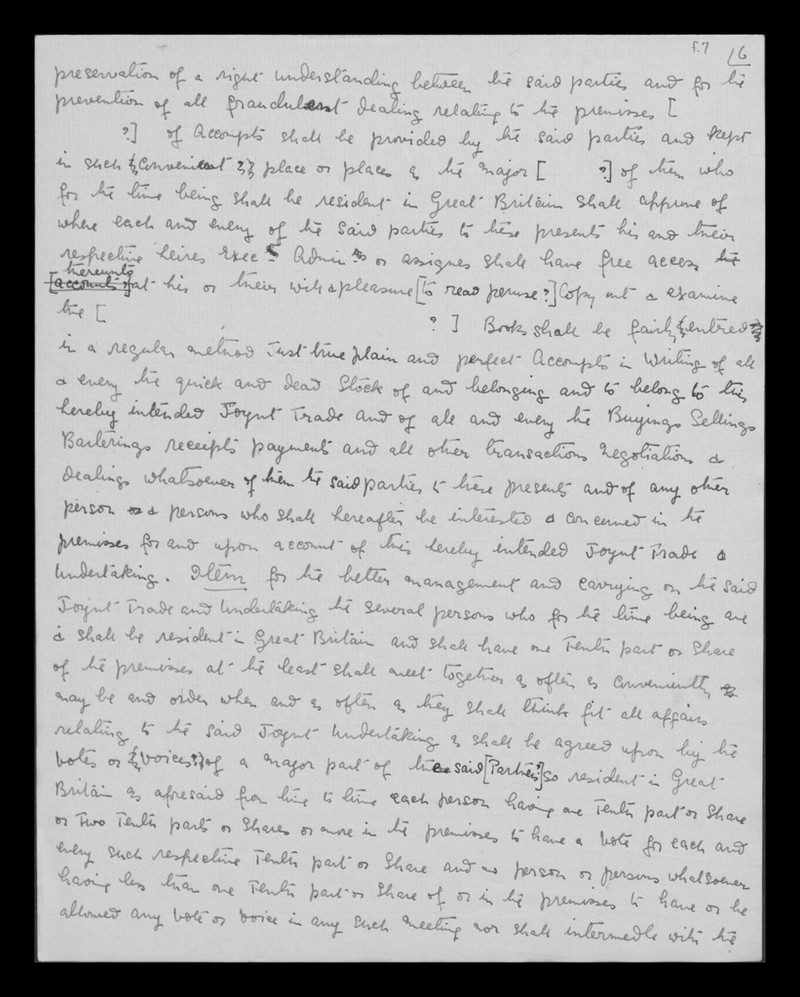 f.7 16
preservation of a right understanding between the said parties and for the
prevention of all fraudulent dealing relating to the premisses [
?] of Accompts shall be provided by the said parties and kept
in such {convenient ?} place or places as the major [ ?] of them who
for the time being shall be resident in Great Britain shall approve of
where each and every of the said parties to these presents his and their
respective heires Exec rs Admin rs or assignes shall have free access
thereunto
[accounts?] at his or their will & pleasure [to read peruse?] Copy out & examine
the [ ? ] Books shall be fairly {entred ?}
in a regular method Just true plain and perfect Accompts in Writing of all
& every the quick and dead Stock of and belonging and to belong to this
hereby intended Joynt Trade and of all and every the Buyings Sellings
Barterings receipts payments and all other transactions negotiations &
dealings whatsoever of them the said parties to these presents and of any other
person or persons who shall hereafter be interested & concerned in the
premisses for and upon account of this hereby intended Joynt Trade &
Undertaking. Item for the better management and carrying on the said
Joynt Trade and Undertaking the several persons who for the time being are
& shall be resident in Great Britain and shall have one Tenth part or Share
of the premisses at the least shall meet together as often as conveniently
may be and order when and as often as they shall think fit all affairs
relating to the said Joynt Undertaking as shall be agreed upon by the
votes or {voices ?} of a major part of the said [Parties?] so resident in Great
Britain as aforesaid from time to time each person having one Tenth part or Share
or Two Tenth parts or Shares or more in the premisses to have a vote for each and
every such respective Tenth part or Share and no person or persons whatsoever
having less than one Tenth part or Share of or in the premisses to have or be
allowed any vote or voice in any such meeting nor shall intermedle with the